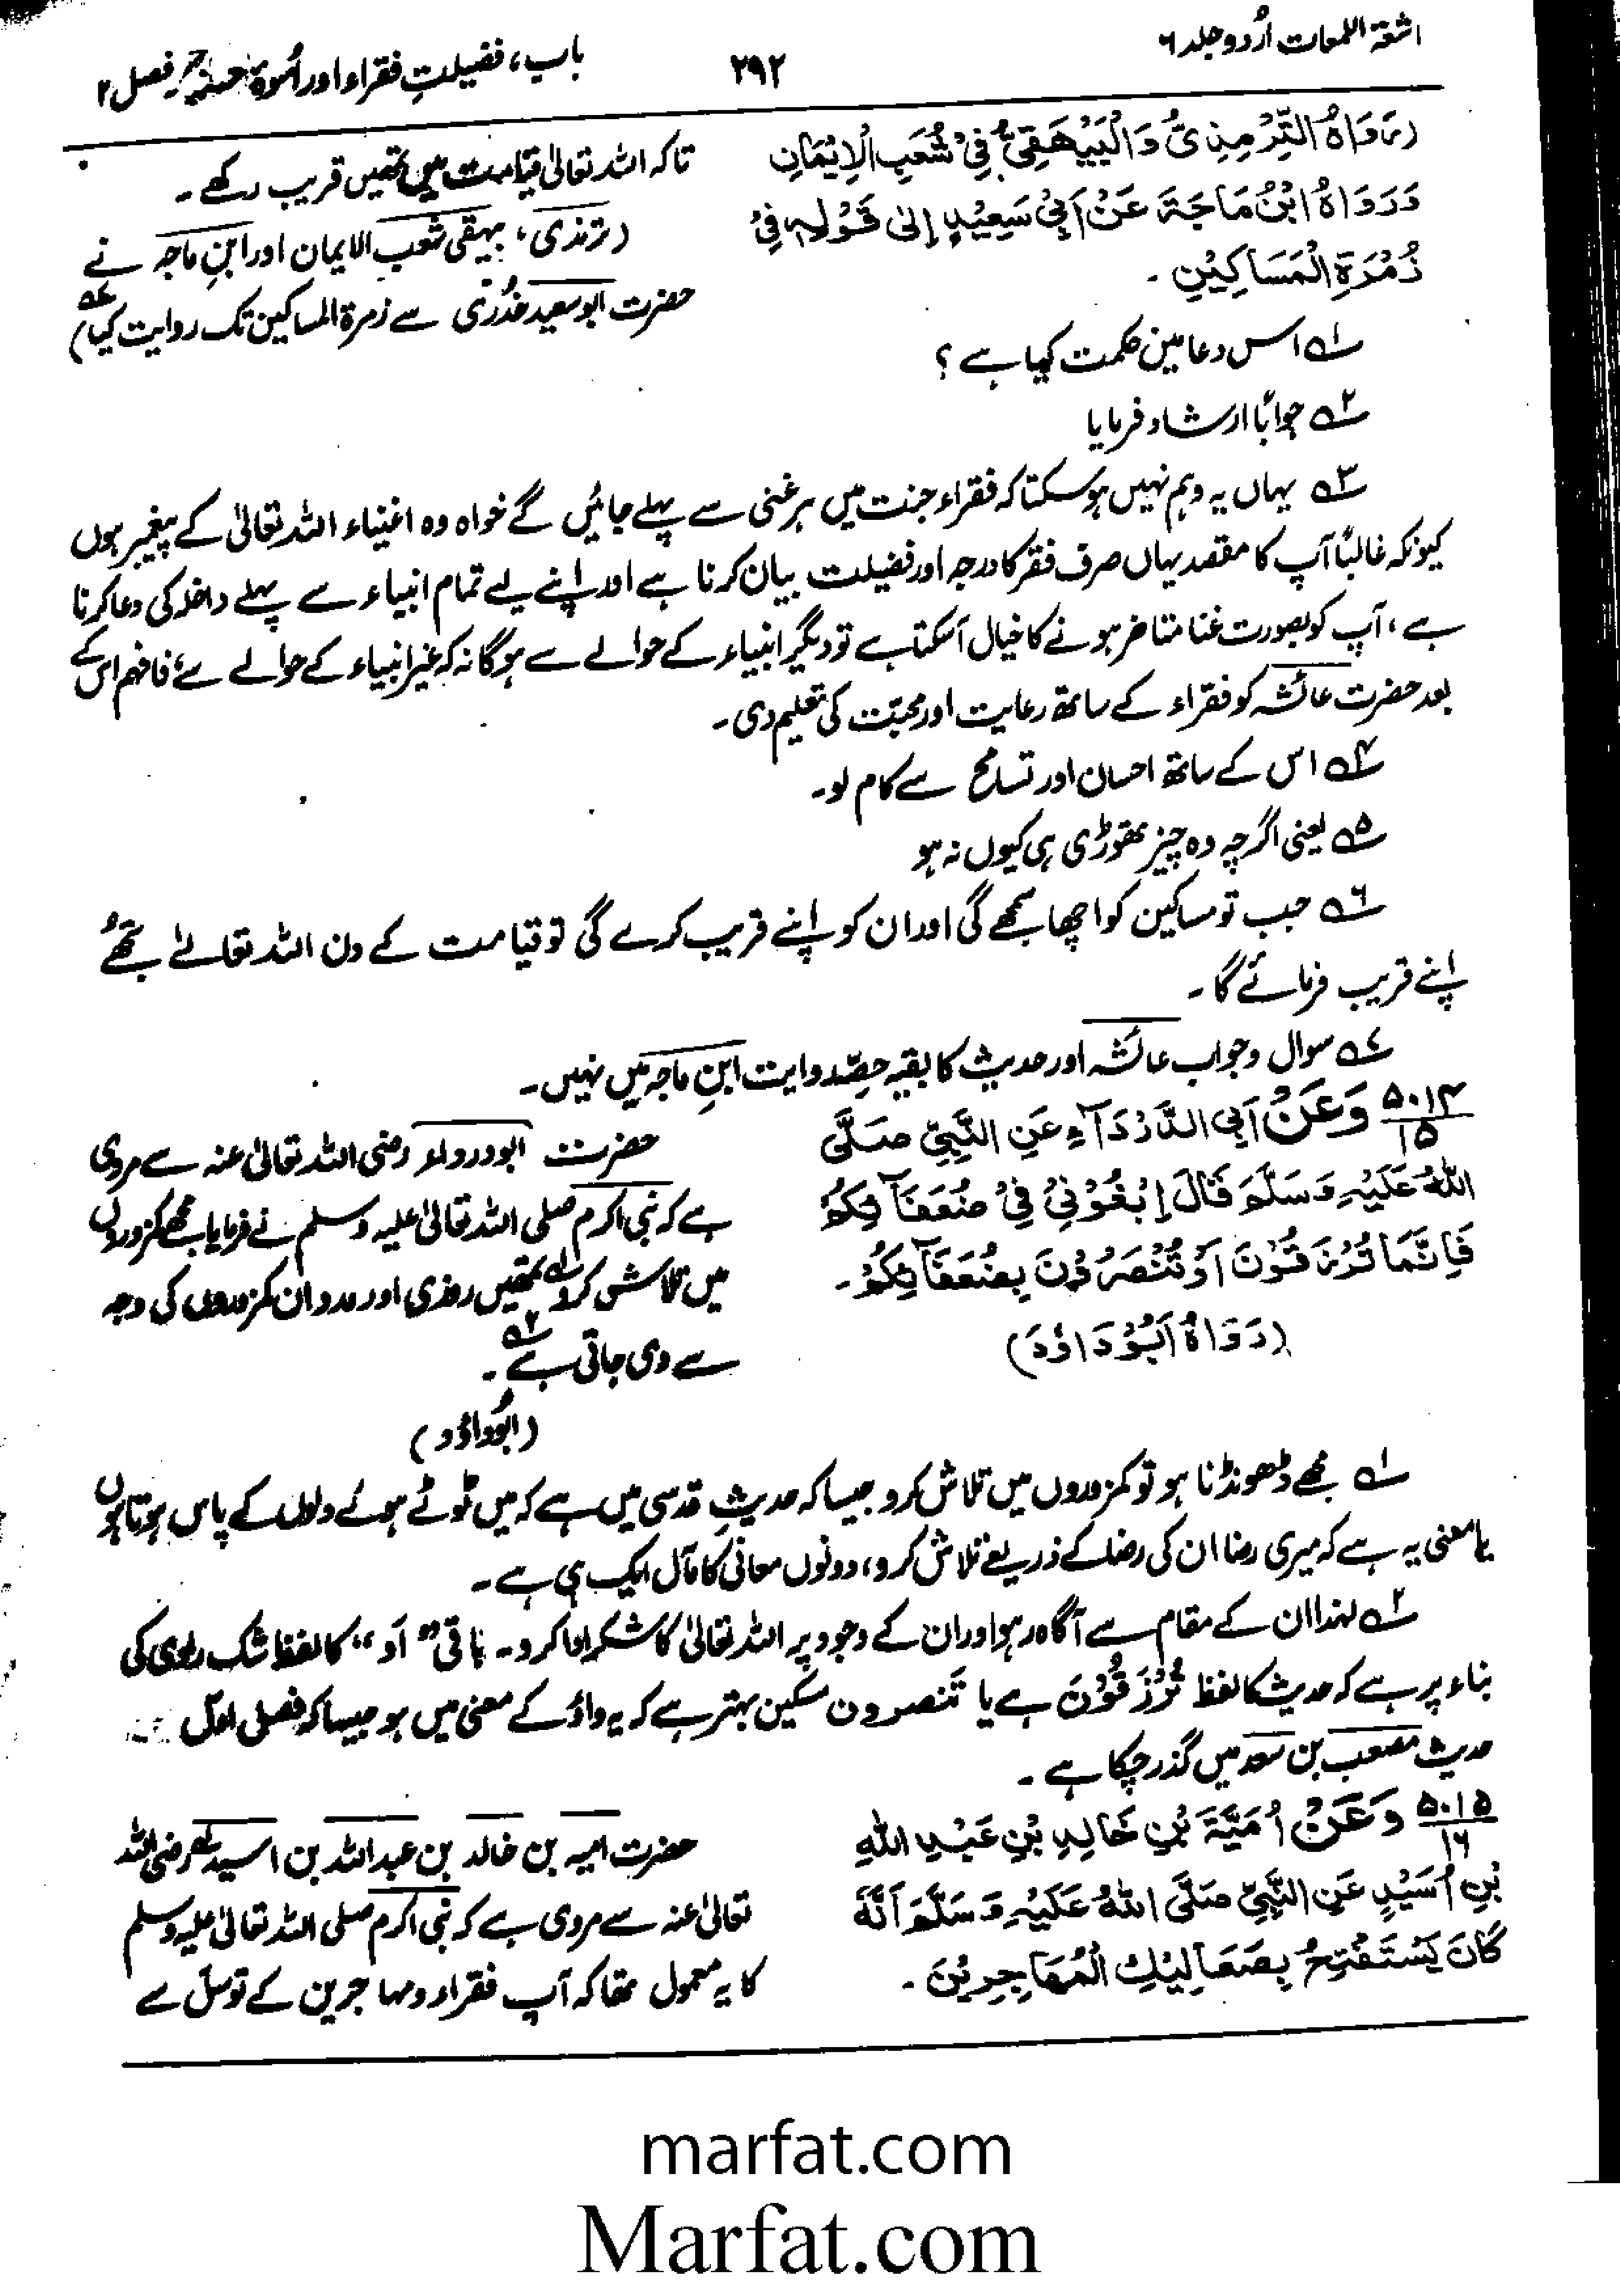 اشعۃ اللمعات اُردو جلد ۶
۲۹۲
باب، فضیلتِ فقراء اور اُسوۂ حسنہ، فصل ۲
(رَوَاهُ التِّرْمِذِیُّ وَالْبَيْهَقِیُّ فِیْ شُعَبِ الْاِيْمَانِ
وَرَوَاهُ ابْنُ مَاجَةَ عَنْ اَبِیْ سَعِيْدٍ اِلٰی قَوْلِهٖ فِیْ
زُمْرَةِ الْمَسَاكِيْنِ۔
تاکہ اللہ تعالیٰ قیامت میں تمھیں قریب رکھے۔
(ترمذی، بیہقی شعب الایمان اور ابنِ ماجہ نے
حضرت ابوسعید خُدری سے زمرۃ المساکین تک روایت کیا) ۷؎
۱؎ اس دعا میں حکمت کیا ہے ؟
۲؎ جواباً ارشاد فرمایا
۳؎ یہاں یہ وہم نہیں ہوسکتا کہ فقراء جنت میں ہر غنی سے پہلے جائیں گے خواہ وہ اغنیاء اللہ تعالیٰ کے پیغمبر ہوں
کیونکہ غالباً آپ کا مقصد یہاں صرف فقر کا درجہ اور فضیلت بیان کرنا ہے اور اپنے لیے تمام انبیاء سے پہلے داخلہ کی دعا کرنا
ہے، آپ کو بصورت غنا متاخر ہونے کا خیال آسکتا ہے تو دیگر انبیاء کے حوالے سے ہوگا نہ کہ غیر انبیاء کے حوالے سے، فافہم اس کے
بعد حضرت عائشہ کو فقراء کے ساتھ رعایت اور محبّت کی تعلیم دی۔
۴؎ اس کے ساتھ احسان اور تسامح سے کام لو۔
۵؎ یعنی اگرچہ وہ چیز تھوڑی ہی کیوں نہ ہو
۶؎ جب تو مساکین کو اچھا سمجھے گی اور ان کو اپنے قریب کرے گی تو قیامت کے دن اللہ تعالےٰ تجھے
اپنے قریب فرمائے گا۔
۷؎ سوال وجواب عائشہ اور حدیث کا بقیہ حصّہ روایت ابنِ ماجہ میں نہیں۔
۵۰۱۴/۱۵ وَعَنْ اَبِی الدَّرْدَآءِ عَنِ النَّبِیِّ صَلَّی
اللهُ عَلَيْهِ وَسَلَّمَ قَالَ اِبْغُوْنِیْ فِیْ ضُعَفَآئِكُمْ
فَاِنَّمَا تُرْزَقُوْنَ اَوْ تُنْصَرُوْنَ بِضُعَفَآئِكُمْ۔
(رَوَاهُ اَبُوْدَاوٗدَ)
حضرت ابودرداء رضی اللہ تعالیٰ عنہ سے مروی
ہے کہ نبی اکرم صلی اللہ تعالیٰ علیہ وسلم نے فرمایا مجھے کمزوروں
میں تلاش کرو۱؎ تمھیں روزی اور مدد ان کمزوروں کی وجہ
سے دی جاتی ہے ۲؎۔
(ابُوداؤد)
۱؎ مجھے ڈھونڈنا ہو تو کمزوروں میں تلاش کرو جیسا کہ حدیثِ قدسی میں ہے کہ میں ٹوٹے ہوئے دلوں کے پاس ہوتا ہوں
یا معنی یہ ہے کہ میری رضا ان کی رضا کے ذریعے تلاش کرو، دونوں معانی کا مآل ایک ہی ہے۔
۲؎ لہٰذا ان کے مقام سے آگاہ رہو اور ان کے وجود پر اللہ تعالیٰ کا شکر ادا کرو۔ باقی ”اَو“ کا لفظ شک راوی کی
بناء پر ہے کہ حدیث کا لفظ تُرْزَقُوْنَ ہے یا تنصرون لیکن بہتر ہے کہ یہ واؤ کے معنی میں ہو جیسا کہ فصل اوّل
حدیث مصعب بن سعد میں گذر چکا ہے۔
۵۰۱۵/۱۶ وَعَنْ اُمَيَّةَ بْنِ خَالِدِ بْنِ عَبْدِ اللهِ
بْنِ اُسَيْدٍ عَنِ النَّبِیِّ صَلَّی اللهُ عَلَيْهِ وَسَلَّمَ اَنَّهٗ
كَانَ يَسْتَفْتِحُ بِصَعَالِيْكِ الْمُهَاجِرِيْنَ۔
حضرت امیہ بن خالد بن عبداللہ بن اسید رضی اللہ
تعالیٰ عنہ سے مروی ہے کہ نبی اکرم صلی اللہ تعالیٰ علیہ وسلم
کا یہ معمول تھا کہ آپ فقراء ومہاجرین کے توسل سے
marfat.com
Marfat.com